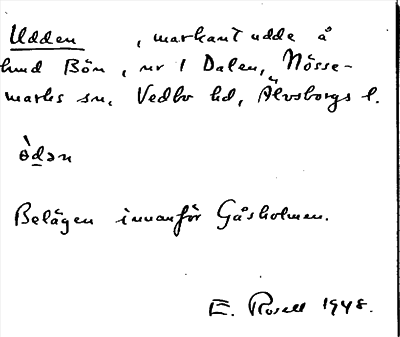 Udden , markant udde å
hmd Bön, nr 1 Dalen, Nösse-
marks sn. Vedbo hd, Älvsborgs l.
 òdən
Belägen innanför Gåsholmen.
E. Rosell 1948.